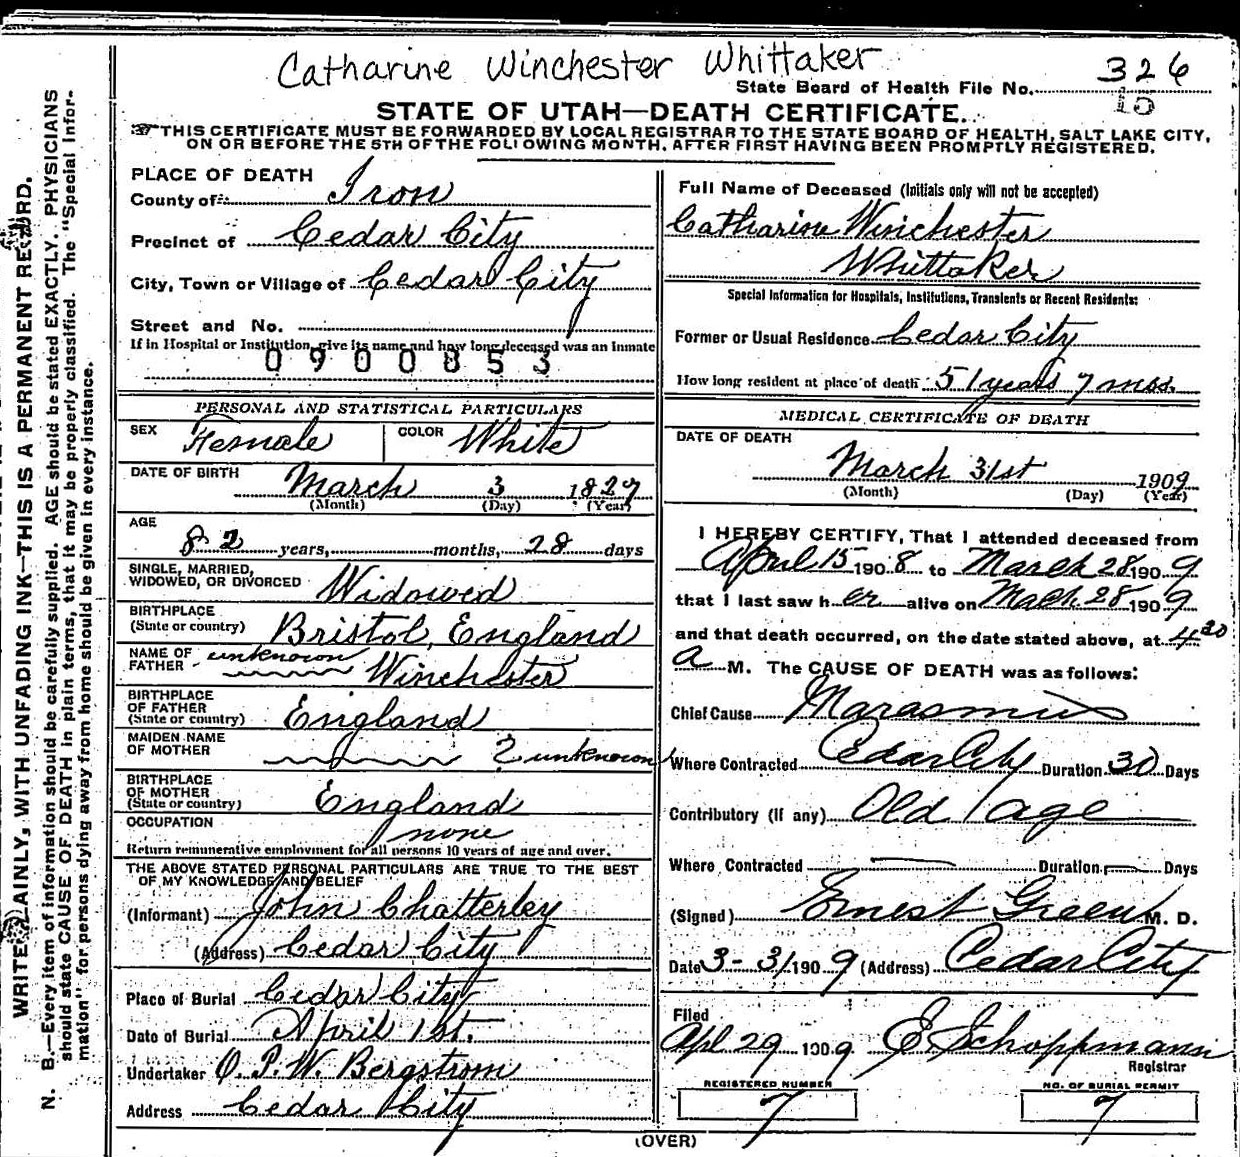 Catharine Winchester Whittaker
State Board of Health File No. 326
15
STATE OF UTAH—DEATH CERTIFICATE.
THIS CERTIFICATE MUST BE FORWARDED BY LOCAL REGISTRAR TO THE STATE BOARD OF HEALTH, SALT LAKE CITY,
ON OR BEFORE THE 5TH OF THE FOLLOWING MONTH, AFTER FIRST HAVING BEEN PROMPTLY REGISTERED.
WRITE PLAINLY, WITH UNFADING INK—THIS IS A PERMANENT RECORD.
N. B.—Every item of information should be carefully supplied. AGE should be stated EXACTLY. PHYSICIANS
should state CAUSE OF DEATH in plain terms, that it may be properly classified. The "Special Infor-
mation" for persons dying away from home should be given in every instance.
PLACE OF DEATH
County of Iron
Precinct of Cedar City
City, Town or Village of Cedar City
Street and No.
If in Hospital or Institution, give its name and how long deceased was an inmate
0900853
PERSONAL AND STATISTICAL PARTICULARS
SEX Female COLOR White
DATE OF BIRTH March 3 1827
(Month) (Day) (Year)
AGE
82 years, months, 28 days
SINGLE, MARRIED,
WIDOWED, OR DIVORCED Widowed
BIRTHPLACE
(State or country) Bristol, England
NAME OF unknown
FATHER Winchester
BIRTHPLACE
OF FATHER
(State or country) England
MAIDEN NAME
OF MOTHER ? unknown
BIRTHPLACE
OF MOTHER
(State or country) England
OCCUPATION none
Return remunerative employment for all persons 10 years of age and over.
THE ABOVE STATED PERSONAL PARTICULARS ARE TRUE TO THE BEST
OF MY KNOWLEDGE AND BELIEF
(Informant) John Chatterley
(Address) Cedar City
Place of Burial Cedar City
Date of Burial April 1st.
Undertaker O. P. W. Bergstrom
Address Cedar City
Full Name of Deceased (Initials only will not be accepted)
Catharine Winchester
Whittaker
Special Information for Hospitals, Institutions, Transients or Recent Residents:
Former or Usual Residence Cedar City
How long resident at place of death 51 years 7 mos.
MEDICAL CERTIFICATE OF DEATH
DATE OF DEATH
March 31st 1909
(Month) (Day) (Year)
I HEREBY CERTIFY, That I attended deceased from
April 15 1908 to March 28 1909
that I last saw her alive on March 28 1909
and that death occurred, on the date stated above, at 4 20
a M. The CAUSE OF DEATH was as follows:
Chief Cause Marasmus
Where Contracted Cedar City Duration 30 Days
Contributory (if any) Old age
Where Contracted Duration Days
(Signed) Ernest Green M. D.
Date 3-31 1909 (Address) Cedar City
Filed
Apl 29 1909 E Schoppmann
Registrar
REGISTERED NUMBER
7
NO. OF BURIAL PERMIT
7
(OVER)